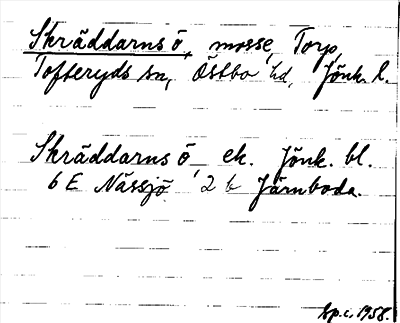 Skräddarns ö, mosse, Torp,
Tofteryds sn, Östbo hd, Jönk. l.
Skräddarns ö ek. Jönk. bl.
6 E Nässjö 2 b Järnboda.
Sp.c. 1958.